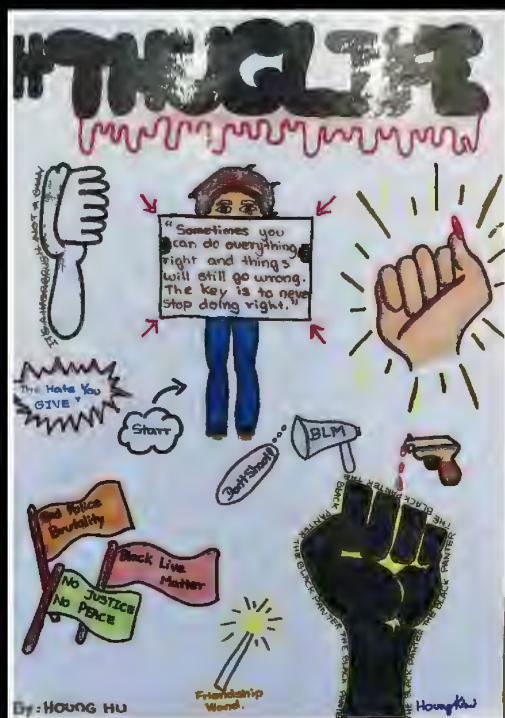 #THUGLIFE
IT IS A HAIRBRUSH NOT A GUN
"Sometimes you
can do everything
right and things
will still go wrong.
The key is to never
Stop doing right."
The Hate You
GIVE"
Starr
BLM
Don't Shoot!
End Police
Brutality
Black Live
Matter
NO JUSTICE
NO PEACE
THE BLACK PANTER THE BLACK PANTER THE BLACK
THE BLACK PANTER THE BLACK
Friendship
Wand.
By: HOUNG HU